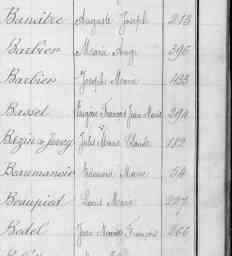 Banâtre Auguste Joseph 213
Barbier Marie Ange 396
Barbier Joseph Marie 433
Basset François Jean Marie 394
Bezin de Jussy Jules Marie Claude 112
Beaumanoir Marie 54
Beaupied Louis Marie 227
Bodel Jean Marie François 266